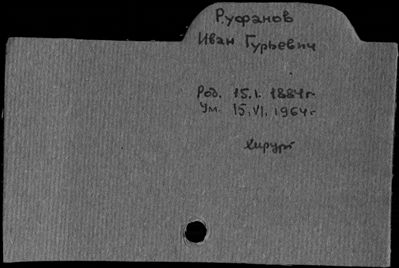 Руфанов
Иван Гурьевич
Род. 15.I. 1884г
Ум. 15.VI. 1964г
хирург